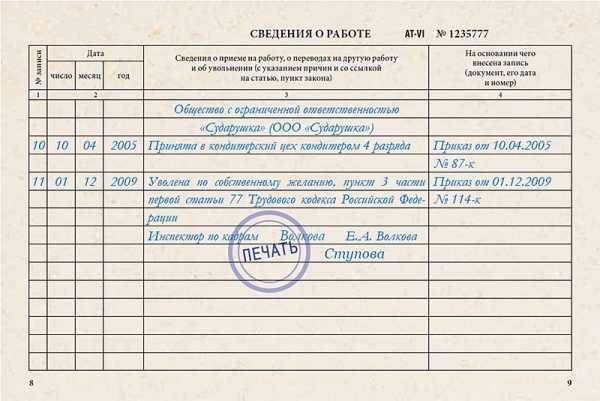 СВЕДЕНИЯ О РАБОТЕ AT-VI № 1235777
№ записи
Дата
число месяц год
Сведения о приеме на работу, о переводах на другую работу
и об увольнении (с указанием причин и со ссылкой
на статью, пункт закона)
На основании чего
внесена запись
(документ, его дата
и номер)
1 2 3 4
Общество с ограниченной ответственностью
«Сударушка» (ООО «Сударушка»)
10 10 04 2005 Принята в кондитерский цех кондитером 4 разряда Приказ от 10.04.2005
№ 87-к
11 01 12 2009 Уволена по собственному желанию, пункт 3 части Приказ от 01.12.2009
первой статьи 77 Трудового кодекса Российской Феде- № 114-к
рации
Инспектор по кадрам Волкова Е.А. Волкова
ПЕЧАТЬ
Ступова
8 9